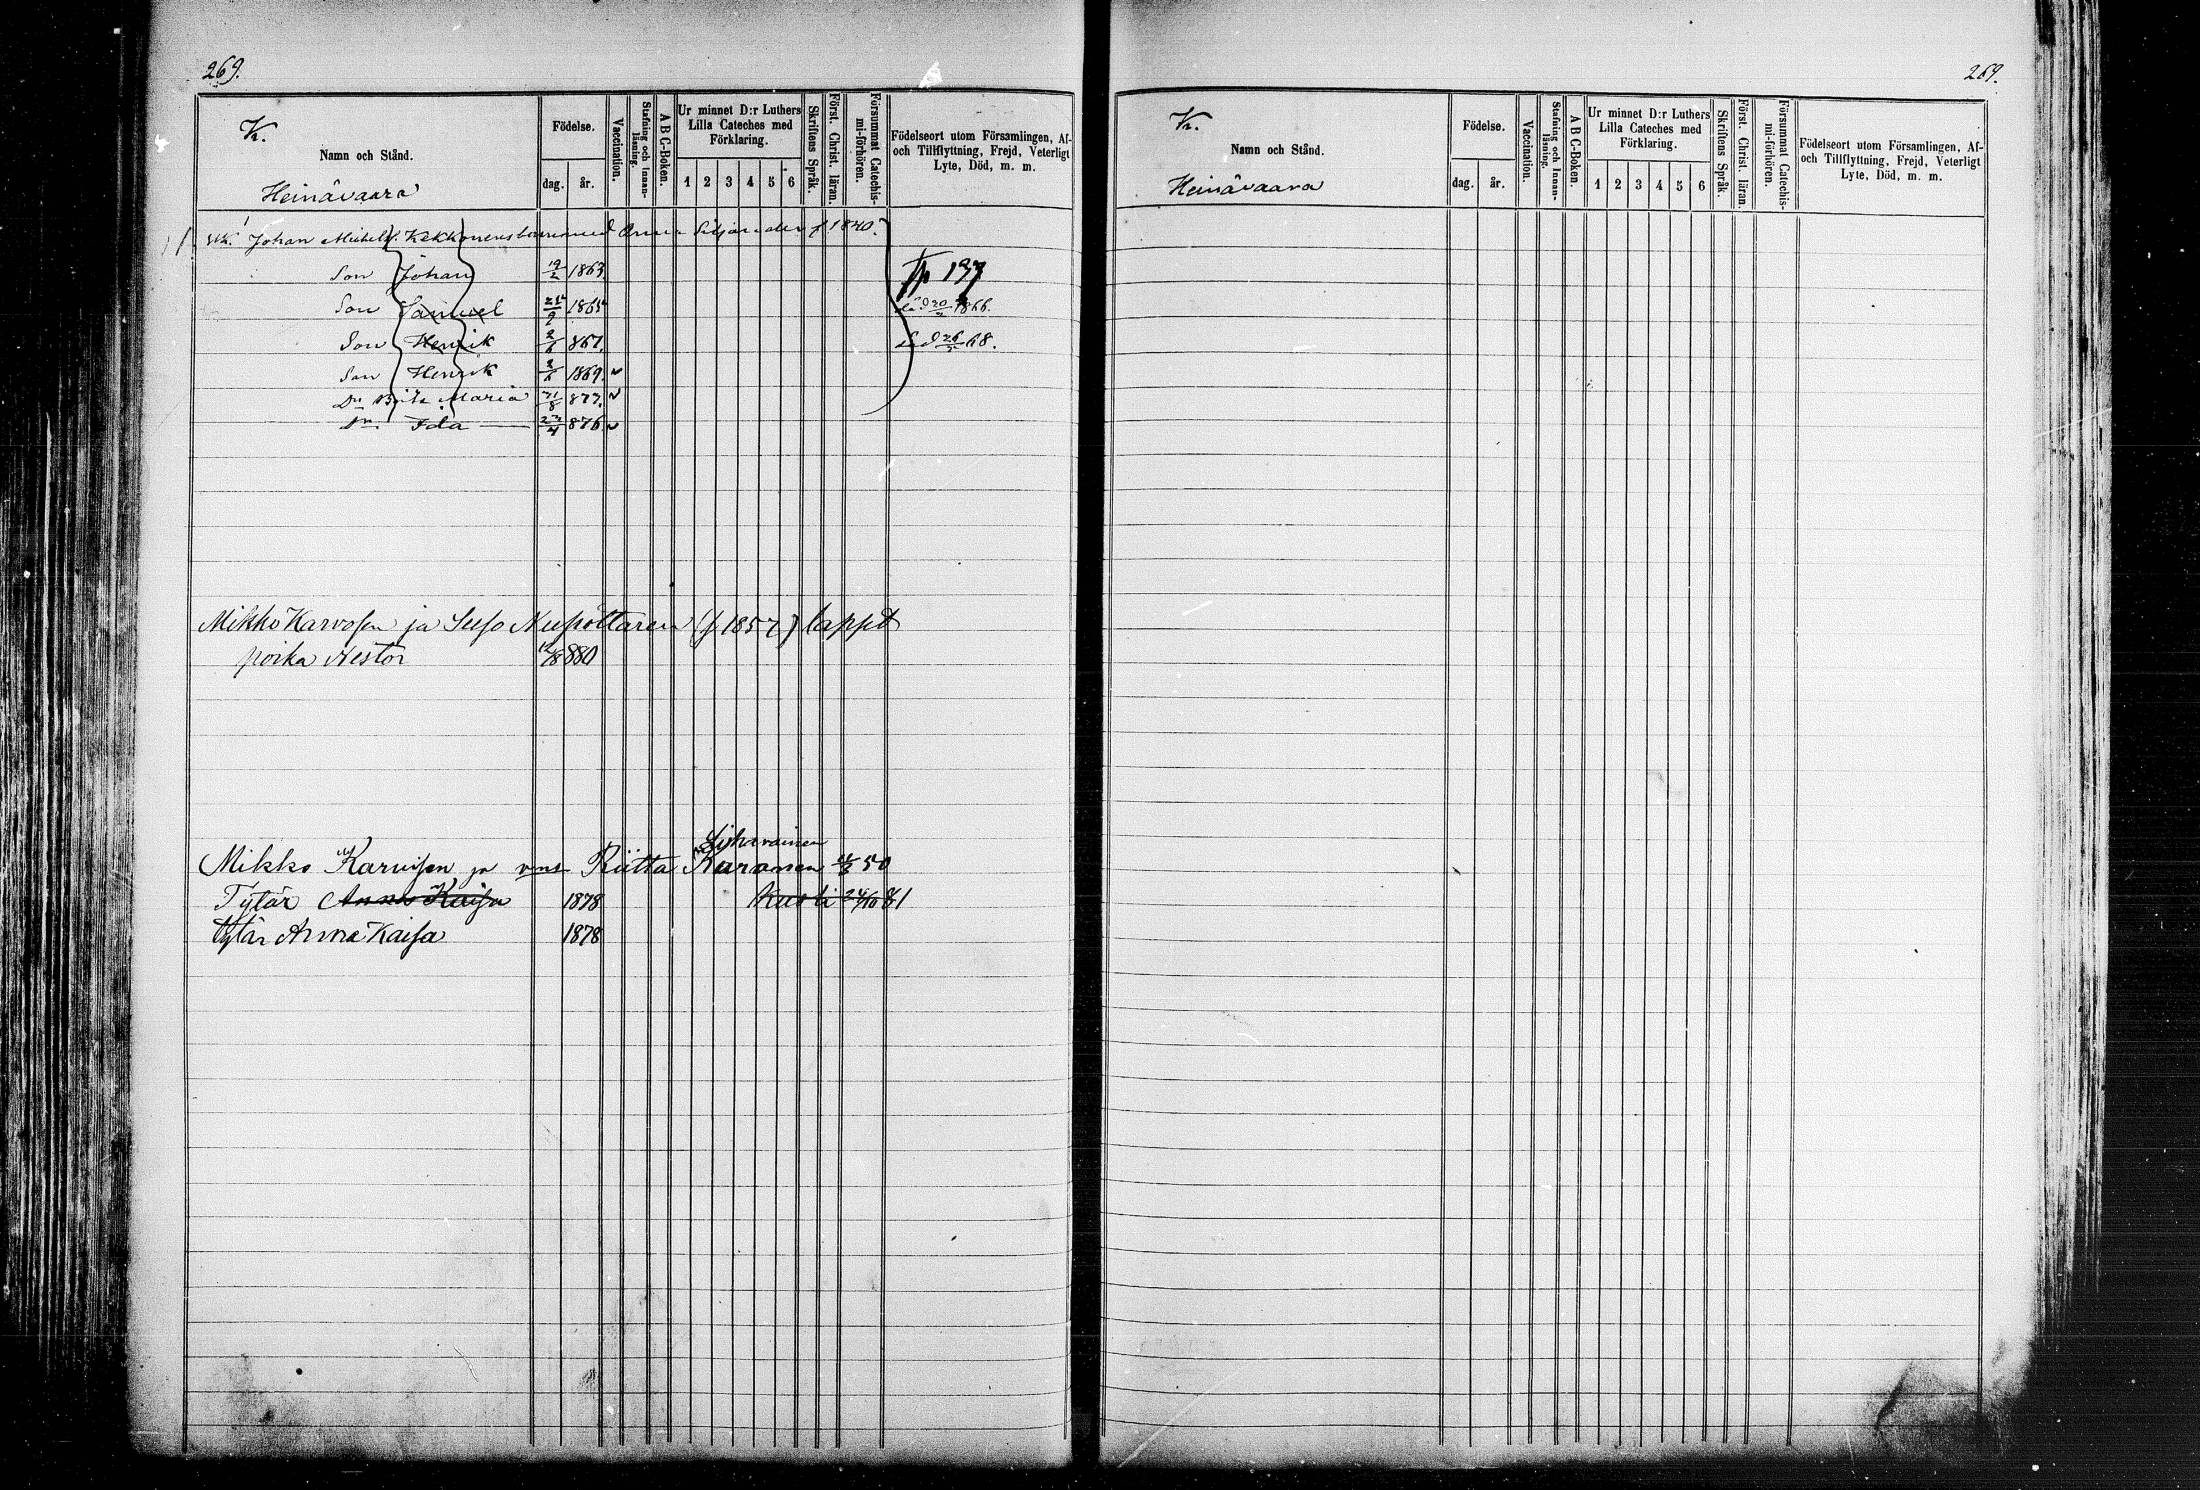 269.
K.
Namn och Stånd.
Heinävaara
Födelse.
dag. år.
Vaccination.
Stafning och Innanläsning.
A B C-Boken.
Ur minnet D:r Luthers Lilla Cateches med Förklaring.
1 2 3 4 5 6
Skriftens Språk.
Först. Christ. läran.
Försummat Catechismi-förhören.
Födelseort utom Församlingen, Af- och Tillflyttning, Frejd, Veterligt Lyte, Död, m. m.
Johan Michelss. Kekkonens barn med Anna f 1840.
Son Johan 19/2 1863 137
Son Samuel 25/9 1865 d. 20/2 1866.
Son Henrik 2/6 867. d 26/5 68.
Son Henrik 2/6 1869.
Dr Brita Maria 31/8 873.
Dr. Ida 23/4 876
Mikko Karvosen ja Nupottaren (f 1857) lapset
poika Nestor 12/8 880
Siiharainen
Mikko Karvisen ja vms Riitta Karonen 50
Tytär Anna Kaisa 1878 Kusti 24/10 81
tytär Anna Kaisa 1878
269.
K.
Namn och Stånd.
Heinävaara
Födelse.
dag. år.
Vaccination.
Stafning och Innanläsning.
A B C-Boken.
Ur minnet D:r Luthers Lilla Cateches med Förklaring.
1 2 3 4 5 6
Skriftens Språk.
Först. Christ. läran.
Försummat Catechismi-förhören.
Födelseort utom Församlingen, Af- och Tillflyttning, Frejd, Veterligt Lyte, Död, m. m.